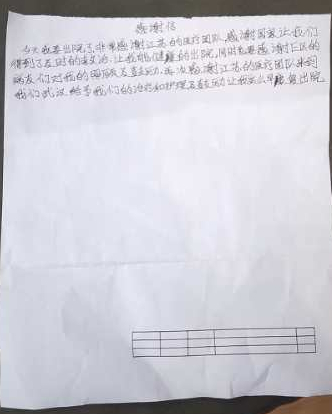 感谢信
今天我要出院了,非常感谢江苏的医疗团队,感谢国家让我们
得到了及时的救治,让我能健康的出院,同时也要感谢社区的
朋友们对我的照顾及鼓励,再次感谢江苏的医疗团队来到
我们武汉给予我们的治疗和护理及鼓励让我怎么早康复出院